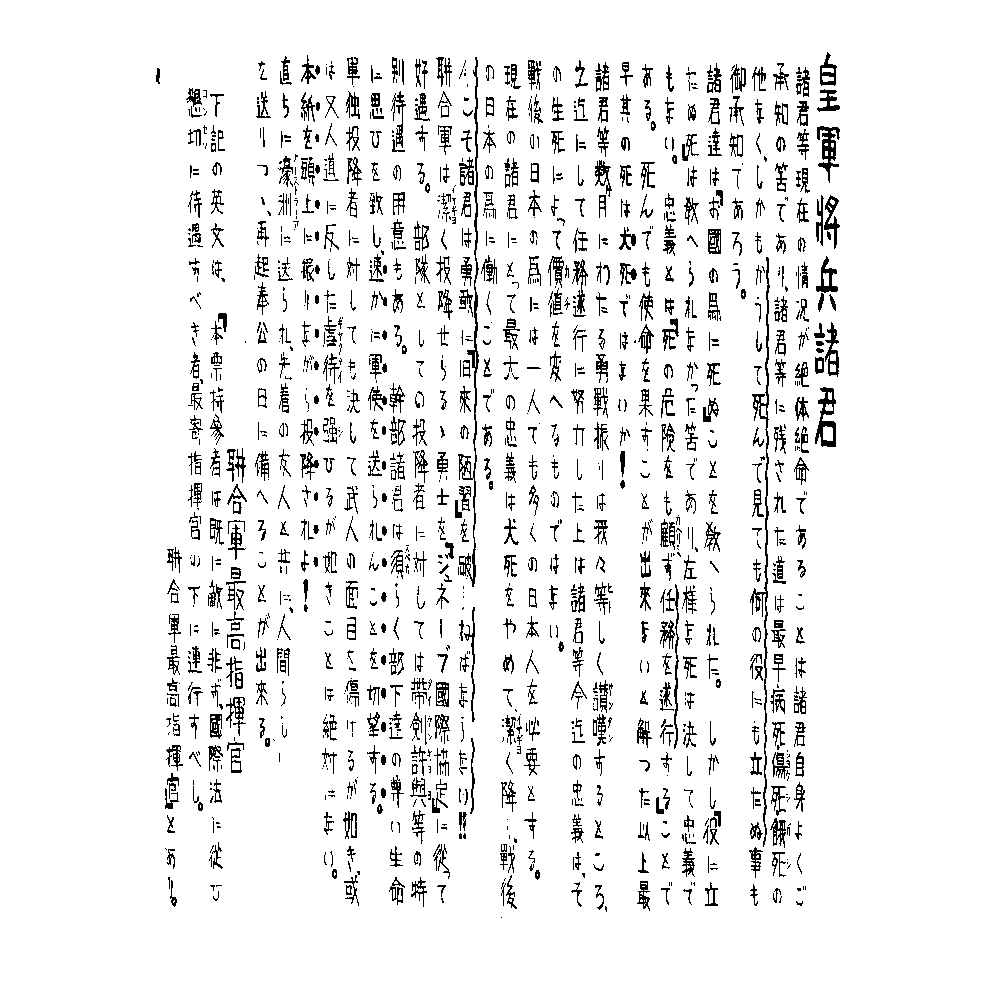 皇軍將兵諸君
諸君等現在の情況が絶体絶命であることは諸君自身よくご
承知の筈であり、諸君等に残された道は最早病死傷死餓死の
他なく、しかもかうして死んで見ても何の役にも立たぬ事も
御承知であろう。
諸君達は『お國の爲に死ぬ』ことを教へられた。しかし『役に立
たぬ死』は教へられなかった筈であり、左様な死は決して忠義で
もない。忠義とは『死の危険をも顧ず任務を遂行する』ことで
ある。死んでも使命を果すことが出来ないと解つた以上最
早其の死は犬死ではないか！
諸君等数ヶ月にわたる勇戦振りは我々等しく讃嘆するところ、
之迄にして任務遂行に努力した上は諸君等今迄の忠義は、そ
の生死によつて價値を変へるものではない。
戦後の日本の爲には一人でも多くの日本人を必要とする。
現在の諸君にとって最大の忠義は犬死をやめて、潔く降り、戦後
の日本の爲に働くことである。
今こそ諸君は勇敢に『旧来の陋習』を破らねばならない!!
聨合軍は潔く投降せらるゝ勇士を『ジュネーブ國際協定』に從って
好遇する。部隊としての投降者に対しては帯剣許與等の特
別待遇の用意もある。幹部諸君は須らく部下達の尊い生命
に思ひを致し、速かに軍使を送られんことを切望する。
軍独投降者に対しても決して武人の面目を傷けるが如き、或
は又人道に反した虐待を強ひるが如きことは絶対にない。
本紙を頭上に振りながら投降されよ！
直ちに濠洲に送られ、先着の友人と共に、人間らし
を送りつゝ、再起奉公の日に備へることが出来る。
聨合軍最高指揮官
下記の英文は、『本票持参者は既に敵に非ず、國際法に從ひ
懇切に待遇すべき者、最寄指揮官の下に連行すべし。
聨合軍最高指揮官』とあり。